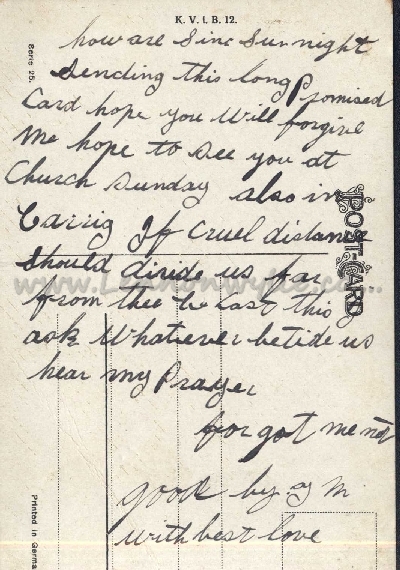 K. V. i. B. 12.
how are Sinc Sun night
Sending this long Promised
Card hope you Will forgive
me hope to see you at
Church Sunday also in
Carrig If Cruel distance
Should divide us far
from thee this
ask Whatever betide us
hear my Prayer
forgot me not
good by M
with best love
POST-CARD
Serie 25.
Printed in Germa